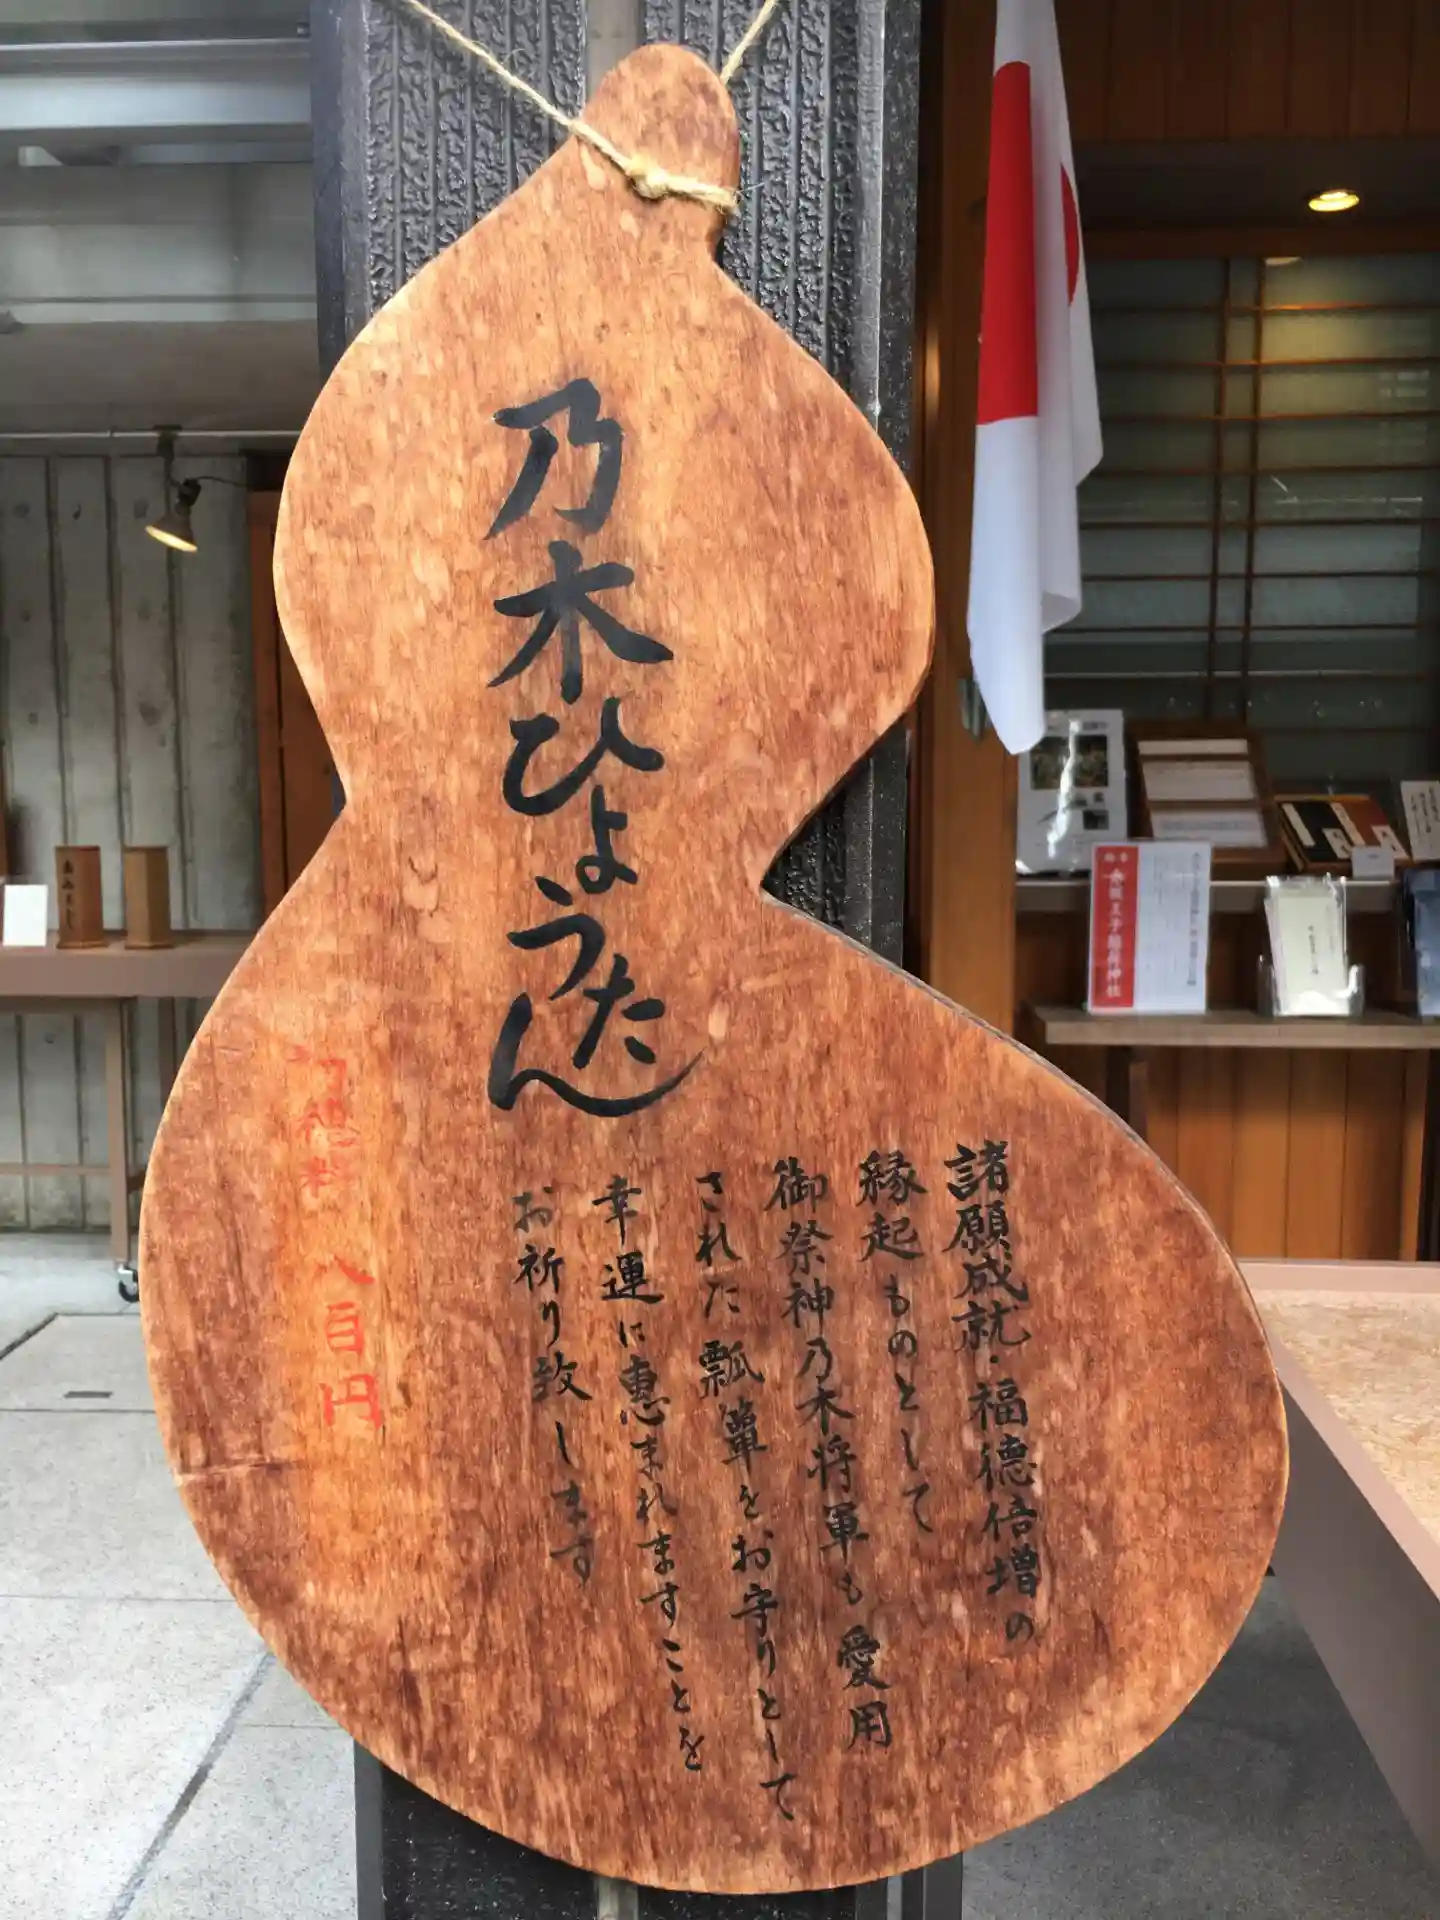 乃木ひょうたん
諸願成就・福徳倍増の
縁起ものとして
御祭神乃木将軍も愛用
された瓢箪をお守りとして
幸運に恵まれますことを
お祈り致します
初穂料 八百円